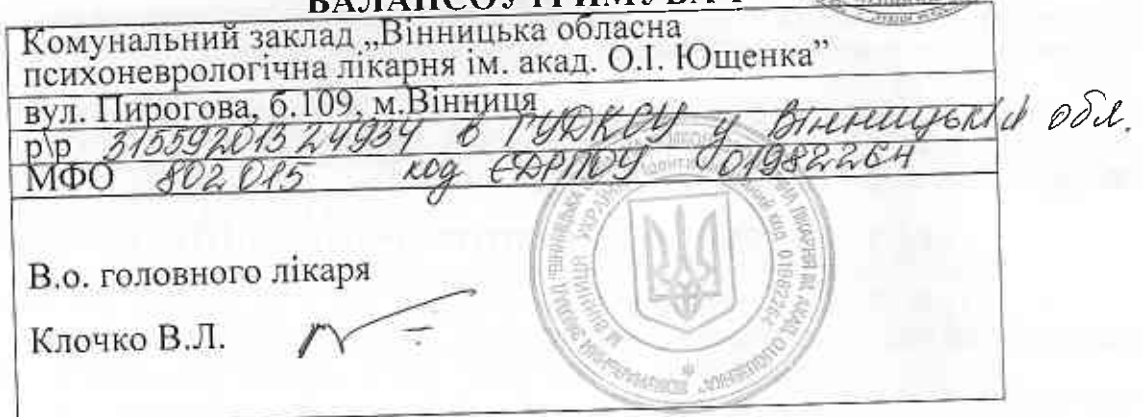 БАЛАНСОУТРИМУВАЧ
Комунальний заклад „Вінницька обласна
психоневрологічна лікарня ім. акад. О.І. Ющенка”
вул. Пирогова, б.109, м.Вінниця
р\р 31559201324934 в ГУДКСУ у Вінницькій обл.
МФО 802015 код ЄДРПОУ 01982264
В.о. головного лікаря
Клочко В.Л.